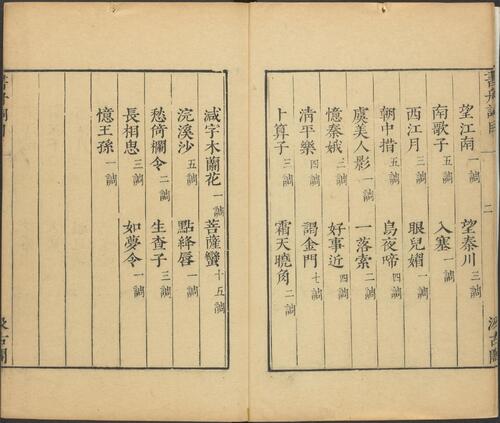 書舟詞目 二 汲古閣
望江南 一調 望秦川 三調
南歌子 五調 入塞 一調
西江月 三調 眼兒媚 一調
朝中措 五調 烏夜啼 四調
虞美人影 一調 一落索 二調
憶秦娥 三調 好事近 四調
清平樂 四調 謁金門 十調
卜算子 三調 霜天曉角 二調
減字木蘭花 一調 菩薩蠻 十五調
浣溪沙 五調 點絳唇 一調
愁倚欄令 二調 生查子 三調
長相思 三調 如夢令 一調
憶王孫 一調
汲古閣